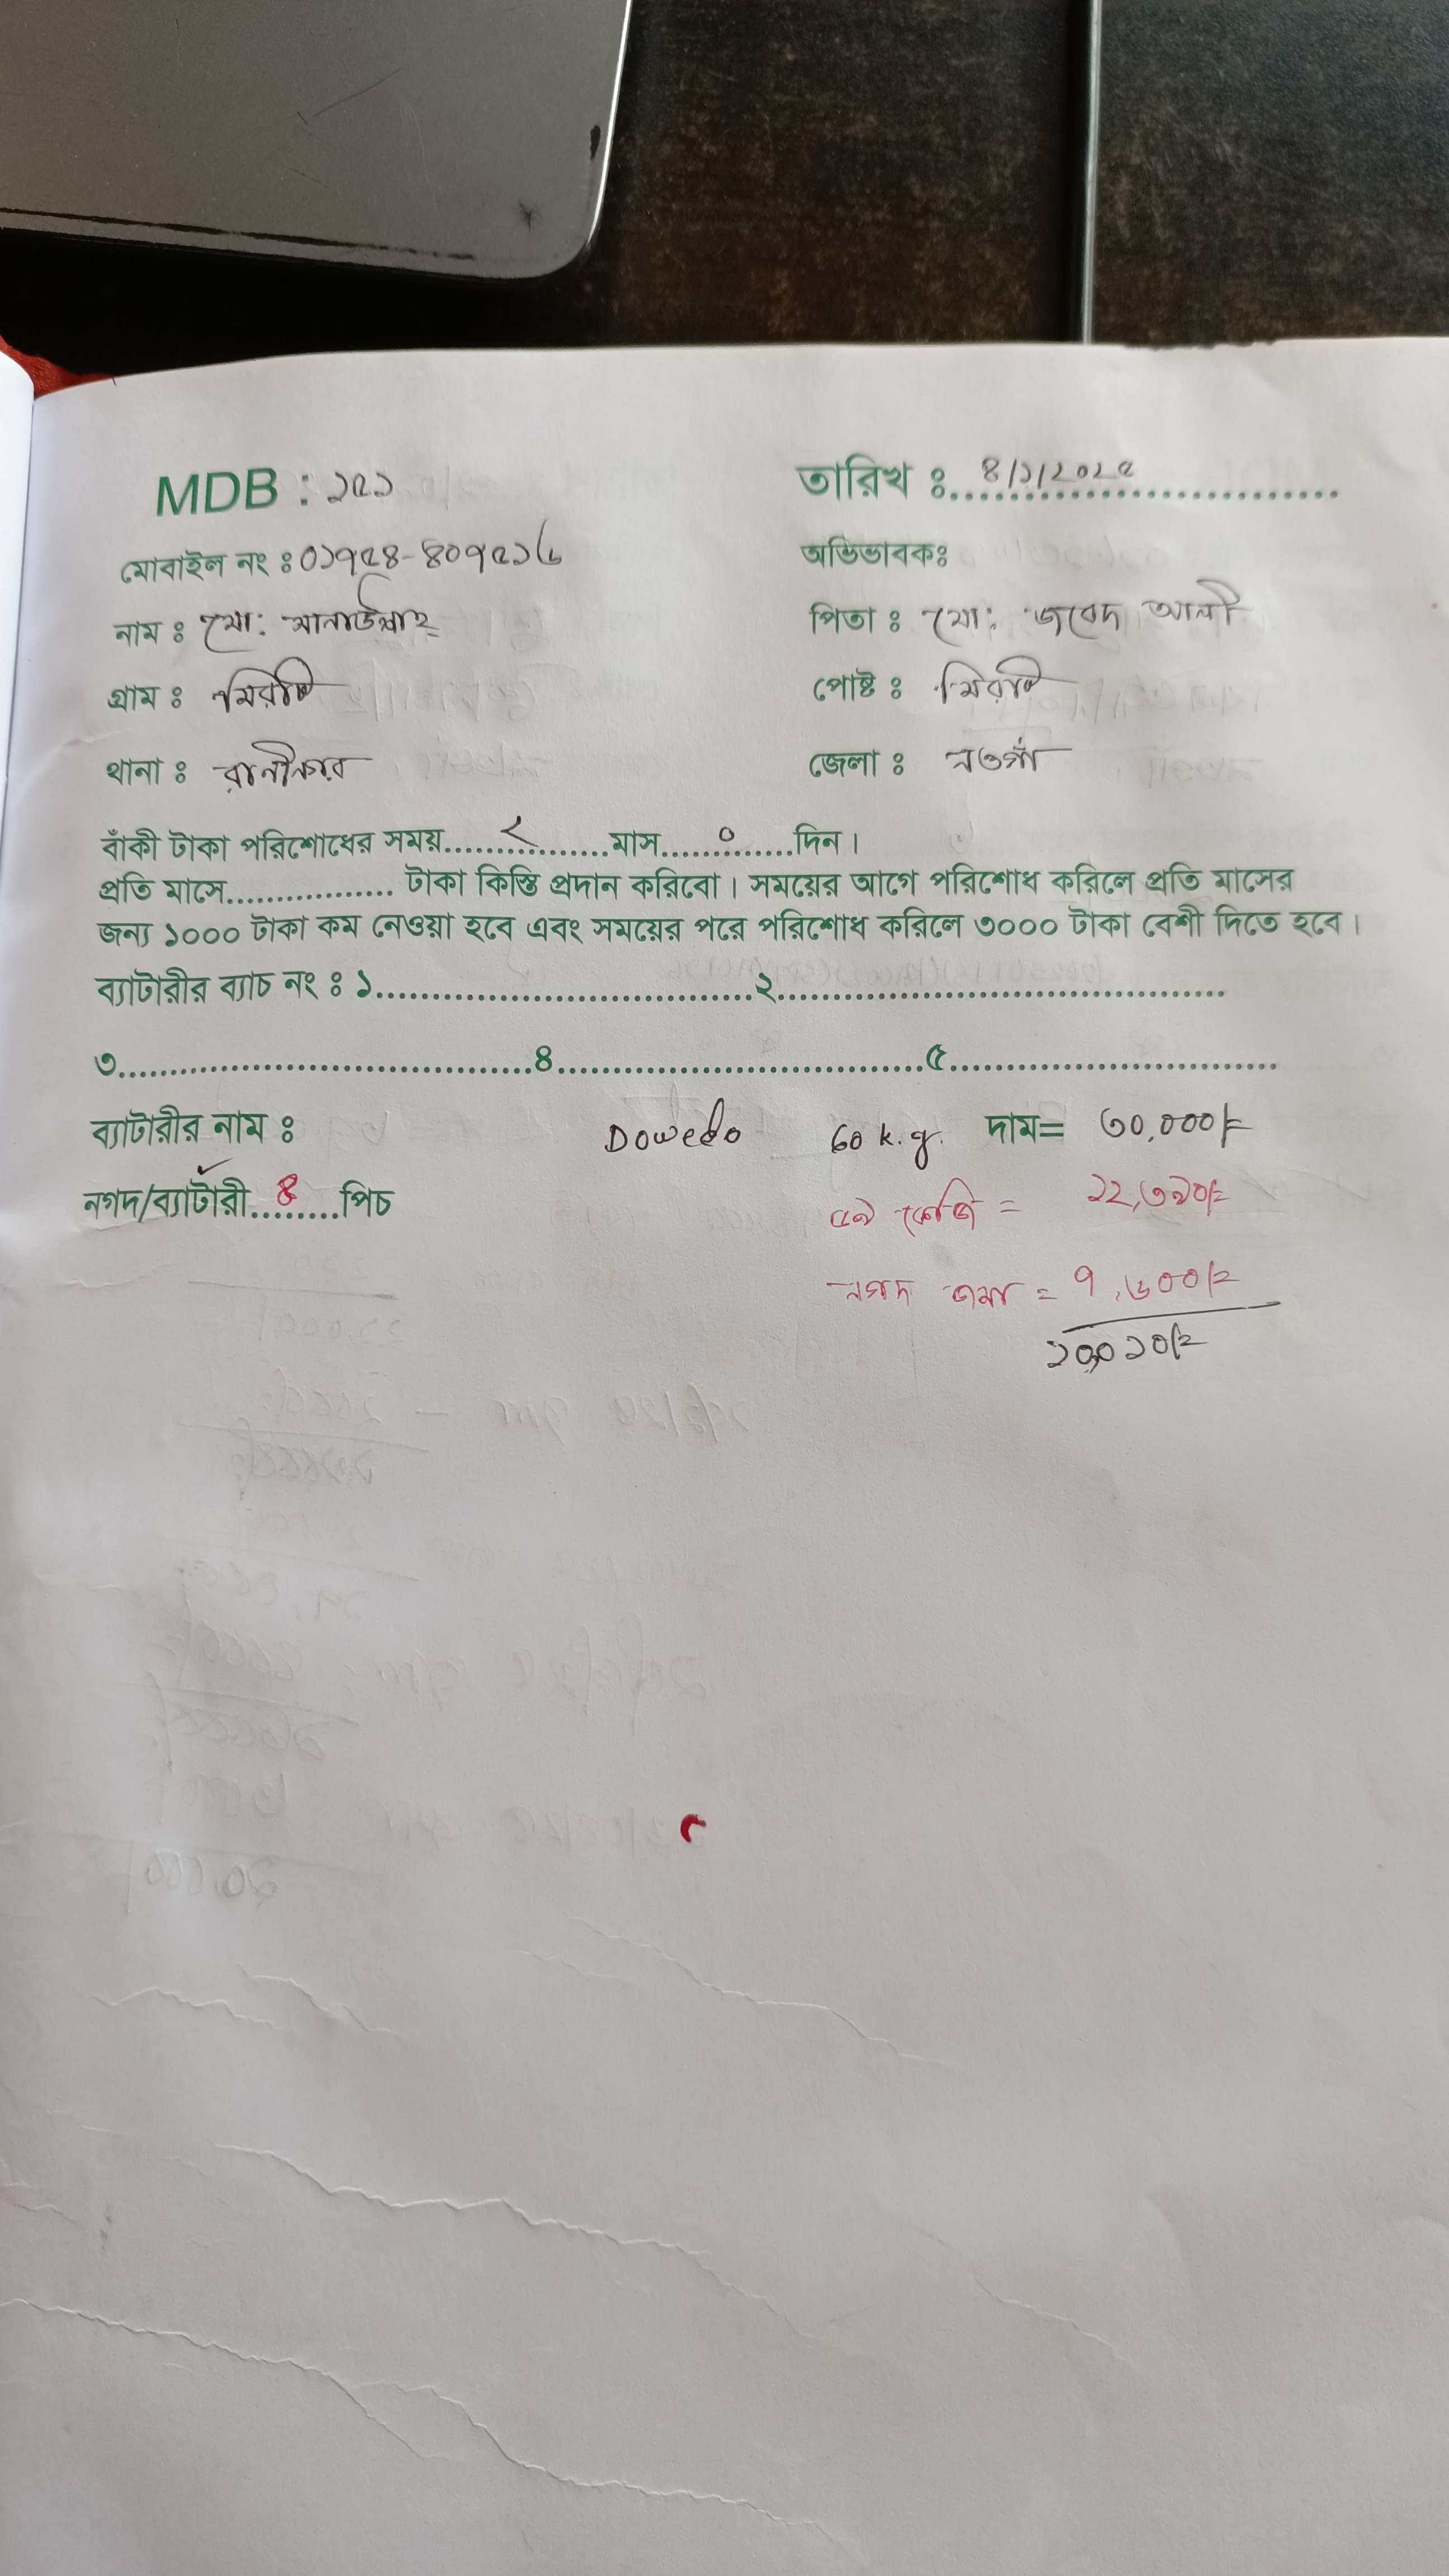 MDB : ১৫১ তারিখ ঃ 8/১/২০২৫
মোবাইল নং ঃ ০১৭৫৪-৪০৭৫১৬ অভিভাবকঃ
নাম ঃ মো: সানাউল্লাহ্ পিতা ঃ মো: জবেদ আলী
গ্রাম ঃ মিরাট পোষ্ট ঃ মিরাট
থানা ঃ রানীনগর জেলা ঃ নওগাঁ
বাঁকী টাকা পরিশোধের সময়.....২.....মাস.....০.....দিন।
প্রতি মাসে................ টাকা কিস্তি প্রদান করিবো। সময়ের আগে পরিশোধ করিলে প্রতি মাসের
জন্য ১০০০ টাকা কম নেওয়া হবে এবং সময়ের পরে পরিশোধ করিলে ৩০০০ টাকা বেশী দিতে হবে।
ব্যাটারীর ব্যাচ নং ঃ ১....................................২..........................................
৩.......................................৪...................................৫...............................
ব্যাটারীর নাম ঃ Dowedo 60 k.g. দাম= ৩০,০০০/=
নগদ/ব্যাটারী...৪...পিচ
৫৯ কেজি = ১২,৩৯০/=
নগদ জমা = ৭,৬০০/=
১০,০১০/=